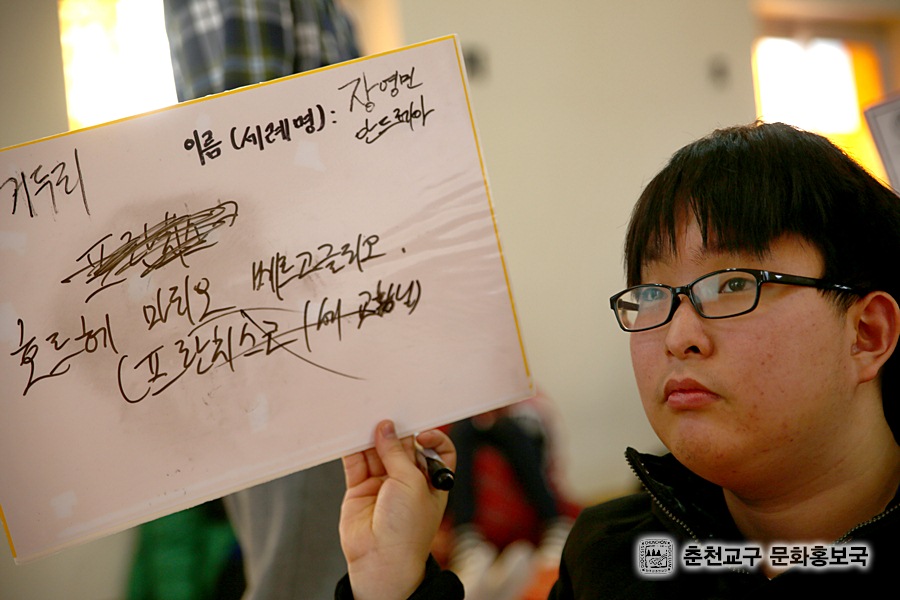 이름 (세례명) : 장영민
안드레아
거두리
호르헤 마리오 베르고글리오.
(프란치스코 1세 교황님)
CHUNCHON
춘천교구 문화홍보국